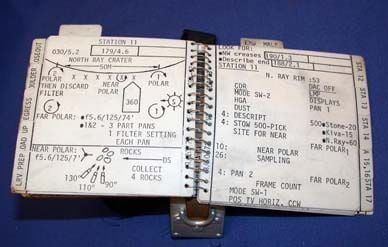 STATION 11
030/5.2
179/4.6
NORTH RAY CRATER
50M
POLAR
THEN DISCARD
FILTER
NEAR POLAR
360
FAR POLAR:
•f5.6/125/74'
•1&2 - 3 PART PANS
1 FILTER SETTING
EACH PAN
NEAR POLAR:
f5.6/125/7'
ROCKS
DS
COLLECT
4 ROCKS
130°
110°
90°
LRV PREP
OAU UP
EGRESS
LOOK FOR:
•NW creases
190/1.3
•Describe end
188/2.1
STATION 11
N. RAY RIM :53
CDR
DAC OFF
MODE SW-2
EMP
HGA
DISPLAYS
DUST
PAN 1
4: DESCRIPT
4: STOW 500-PICK
500
•Stone-20
SITE FOR NEAR
•Kiva-15
•N.Ray-60
10:
NEAR POLAR
FAR POLAR
26:
SAMPLING
4: PAN 2
FAR POLAR
FRAME COUNT
MODE SW-1
POS TV HORIZ, CCW
STA 12
STA 13
STA 14
STA 15,16
STA 17